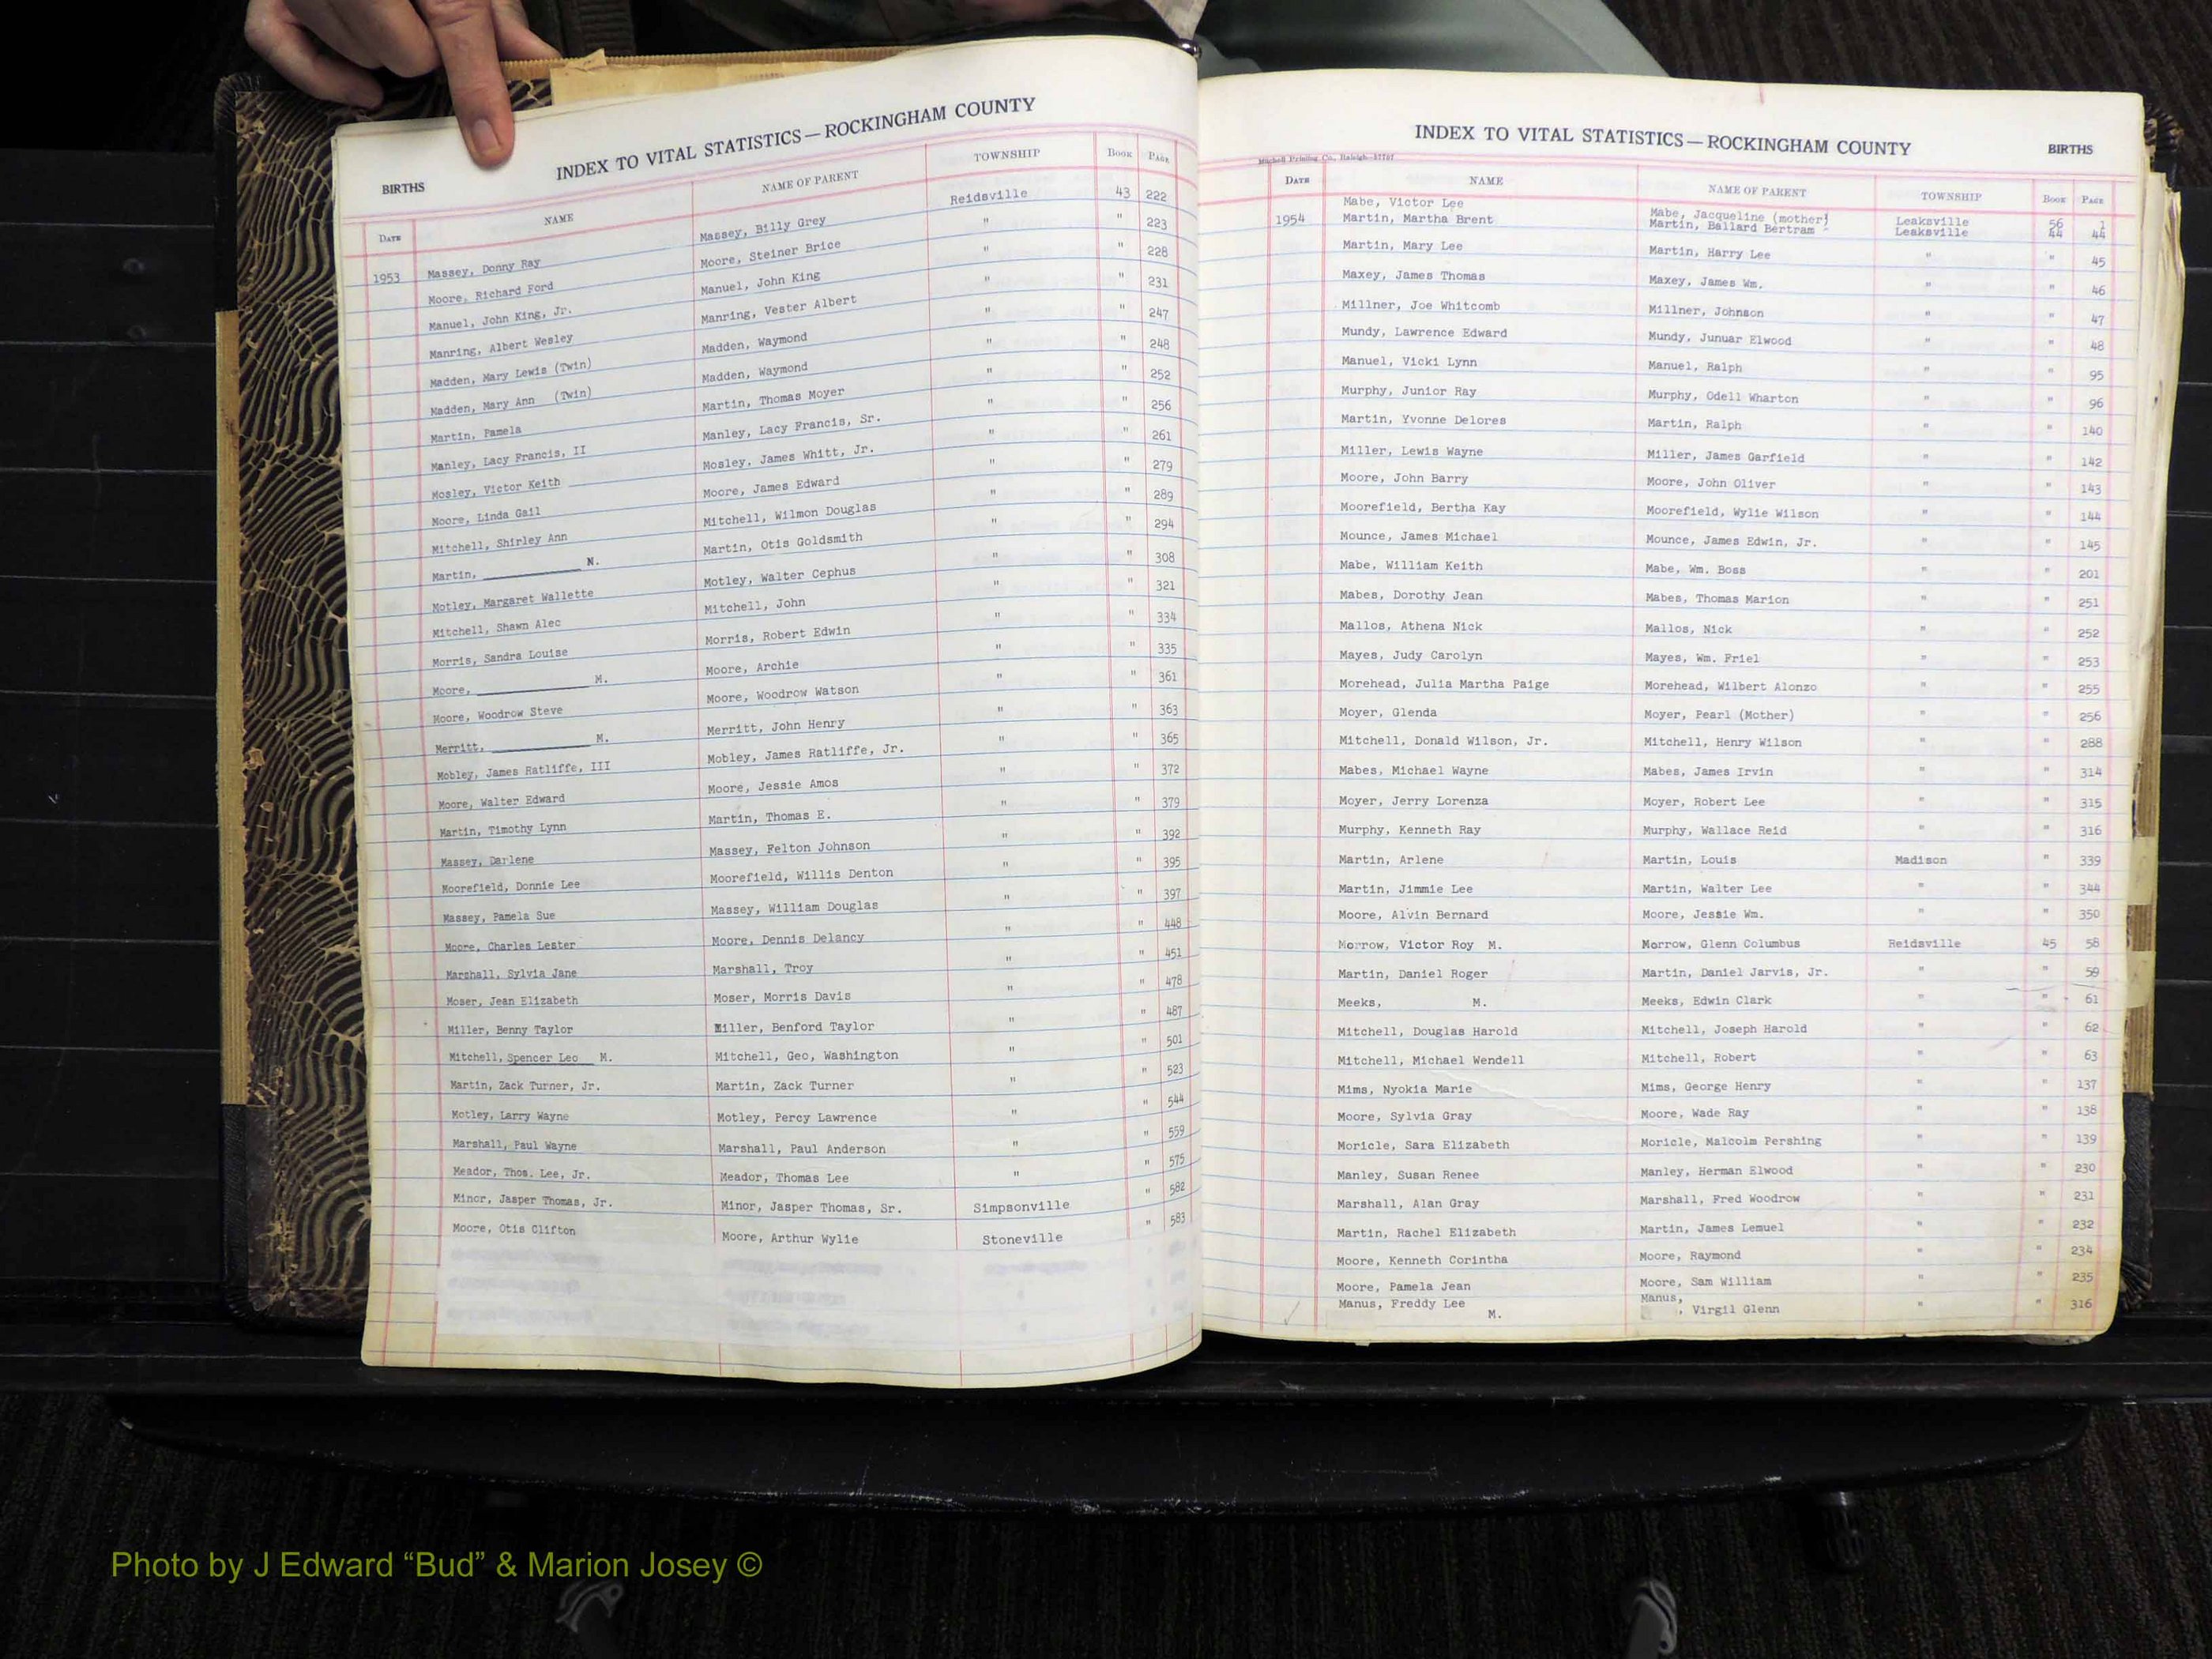 INDEX TO VITAL STATISTICS — ROCKINGHAM COUNTY
BIRTHS
DATE NAME NAME OF PARENT TOWNSHIP BOOK PAGE
1953 Massey, Donny Ray Massey, Billy Grey Reidsville 43 222
Moore, Richard Ford Moore, Steiner Brice " " 223
Manuel, John King, Jr. Manuel, John King " " 228
Manring, Albert Wesley Manring, Vester Albert " " 231
Madden, Mary Lewis (Twin) Madden, Waymond " " 247
Madden, Mary Ann (Twin) Madden, Waymond " " 248
Martin, Pamela Martin, Thomas Moyer " " 252
Manley, Lacy Francis, II Manley, Lacy Francis, Sr. " " 256
Mosley, Victor Keith Mosley, James Whitt, Jr. " " 261
Moore, Linda Gail Moore, James Edward " " 279
Mitchell, Shirley Ann Mitchell, Wilmon Douglas " " 289
Martin, ____________ N. Martin, Otis Goldsmith " " 294
Motley, Margaret Wallette Motley, Walter Cephus " " 308
Mitchell, Shawn Alec Mitchell, John " " 321
Morris, Sandra Louise Morris, Robert Edwin " " 334
Moore, ____________ M. Moore, Archie " " 335
Moore, Woodrow Steve Moore, Woodrow Watson " " 361
Merritt, ____________ M. Merritt, John Henry " " 363
Mobley, James Ratliffe, III Mobley, James Ratliffe, Jr. " " 365
Moore, Walter Edward Moore, Jessie Amos " " 372
Martin, Timothy Lynn Martin, Thomas E. " " 379
Massey, Darlene Massey, Felton Johnson " " 392
Moorefield, Donnie Lee Moorefield, Willis Denton " " 395
Massey, Pamela Sue Massey, William Douglas " " 397
Moore, Charles Lester Moore, Dennis Delancy " " 448
Marshall, Sylvia Jane Marshall, Troy " " 451
Moser, Jean Elizabeth Moser, Morris Davis " " 478
Miller, Benny Taylor Miller, Benford Taylor " " 487
Mitchell, Spencer Leo M. Mitchell, Geo, Washington " " 501
Martin, Zack Turner, Jr. Martin, Zack Turner " " 523
Motley, Larry Wayne Motley, Percy Lawrence " " 544
Marshall, Paul Wayne Marshall, Paul Anderson " " 559
Meador, Thos. Lee, Jr. Meador, Thomas Lee " " 575
Minor, Jasper Thomas, Jr. Minor, Jasper Thomas, Sr. Simpsonville " 582
Moore, Otis Clifton Moore, Arthur Wylie Stoneville " 583
INDEX TO VITAL STATISTICS — ROCKINGHAM COUNTY
BIRTHS
Mitchell Printing Co., Raleigh—57757
DATE NAME NAME OF PARENT TOWNSHIP BOOK PAGE
Mabe, Victor Lee Mabe, Jacqueline (mother) Leaksville 56 1
1954 Martin, Martha Brent Martin, Ballard Bertram Leaksville 44 44
Martin, Mary Lee Martin, Harry Lee " " 45
Maxey, James Thomas Maxey, James Wm. " " 46
Millner, Joe Whitcomb Millner, Johnson " " 47
Mundy, Lawrence Edward Mundy, Junuar Elwood " " 48
Manuel, Vicki Lynn Manuel, Ralph " " 95
Murphy, Junior Ray Murphy, Odell Wharton " " 96
Martin, Yvonne Delores Martin, Ralph " " 140
Miller, Lewis Wayne Miller, James Garfield " " 142
Moore, John Barry Moore, John Oliver " " 143
Moorefield, Bertha Kay Moorefield, Wylie Wilson " " 144
Mounce, James Michael Mounce, James Edwin, Jr. " " 145
Mabe, William Keith Mabe, Wm. Boss " " 201
Mabes, Dorothy Jean Mabes, Thomas Marion " " 251
Mallos, Athena Nick Mallos, Nick " " 252
Mayes, Judy Carolyn Mayes, Wm. Friel " " 253
Morehead, Julia Martha Paige Morehead, Wilbert Alonzo " " 255
Moyer, Glenda Moyer, Pearl (Mother) " " 256
Mitchell, Donald Wilson, Jr. Mitchell, Henry Wilson " " 288
Mabes, Michael Wayne Mabes, James Irvin " " 314
Moyer, Jerry Lorenza Moyer, Robert Lee " " 315
Murphy, Kenneth Ray Murphy, Wallace Reid " " 316
Martin, Arlene Martin, Louis Madison " 339
Martin, Jimmie Lee Martin, Walter Lee " " 344
Moore, Alvin Bernard Moore, Jessie Wm. " " 350
Morrow, Victor Roy M. Morrow, Glenn Columbus Reidsville 45 58
Martin, Daniel Roger Martin, Daniel Jarvis, Jr. " " 59
Meeks, M. Meeks, Edwin Clark " " 61
Mitchell, Douglas Harold Mitchell, Joseph Harold " " 62
Mitchell, Michael Wendell Mitchell, Robert " " 63
Mims, Nyokia Marie Mims, George Henry " " 137
Moore, Sylvia Gray Moore, Wade Ray " " 138
Moricle, Sara Elizabeth Moricle, Malcolm Pershing " " 139
Manley, Susan Renee Manley, Herman Elwood " " 230
Marshall, Alan Gray Marshall, Fred Woodrow " " 231
Martin, Rachel Elizabeth Martin, James Lemuel " " 232
Moore, Kenneth Corintha Moore, Raymond " " 234
Moore, Pamela Jean Moore, Sam William " " 235
Manus, Freddy Lee Manus,
M. , Virgil Glenn " " 316
Photo by J Edward “Bud” & Marion Josey ©